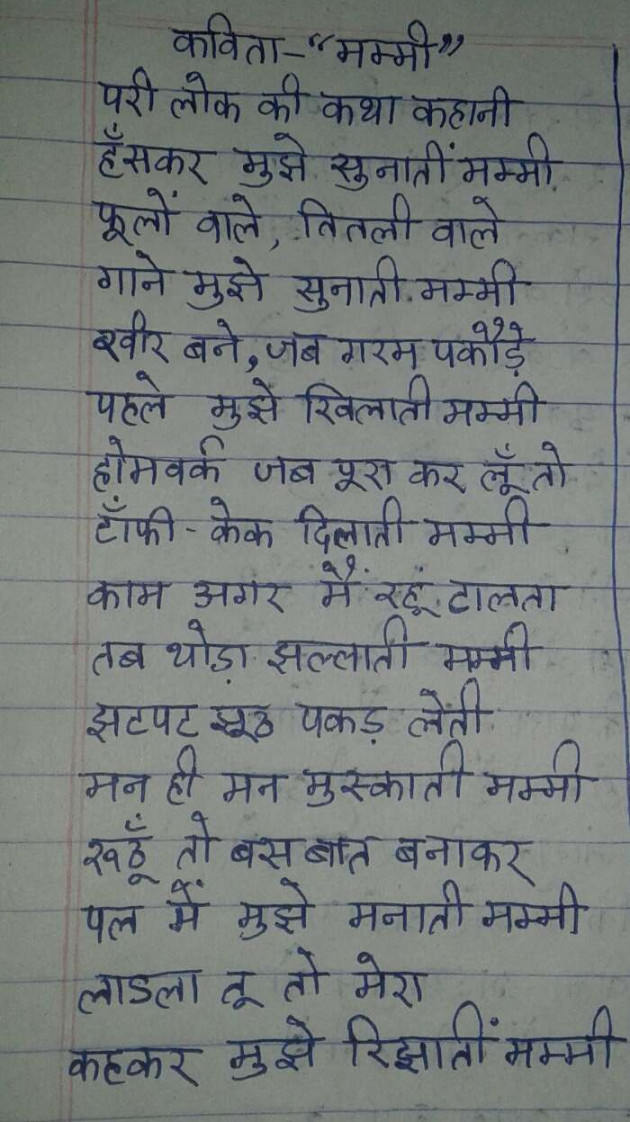 कविता-“मम्मी”
परी लोक की कथा कहानी
हँसकर मुझे सुनातीं मम्मी
फूलों वाले, तितली वाले
गाने मुझे सुनाती मम्मी
खीर बने, जब गरम पकौड़े
पहले मुझे खिलाती मम्मी
होमवर्क जब पूरा कर लूँ तो
टॉफी-केक दिलाती मम्मी
काम अगर मैं रहूं टालता
तब थोड़ा झल्लाती मम्मी
झटपट झूठ पकड़ लेती
मन ही मन मुस्काती मम्मी
रूठूँ तो बस बात बनाकर
पल में मुझे मनाती मम्मी
लाडला तू तो मेरा
कहकर मुझे रिझातीं मम्मी